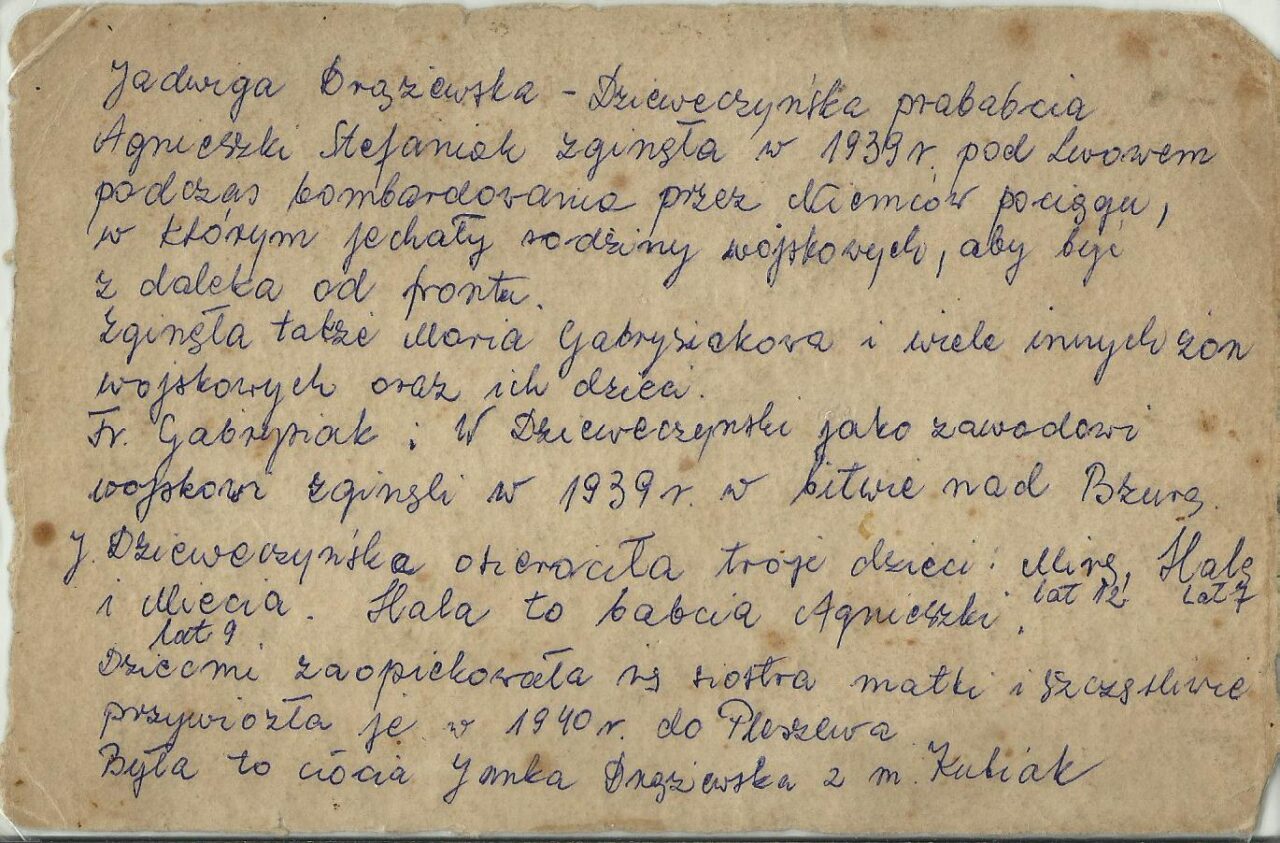 Jadwiga Drążewska - Dziewęczyńska prababcia
Agnieszki Stefaniak zginęła w 1939 r. pod Lwowem
podczas bombardowania przez Niemców pociągu,
w którym jechały rodziny wojskowych, aby być
z daleka od frontu.
Zginęła także Maria Gabrysiakowa i wiele innych żon
wojskowych oraz ich dzieci.
Fr. Gabrysiak i W Dziewęczyński jako zawodowi
wojskowi zginęli w 1939 r. w bitwie nad Bzurą.
J. Dziewęczyńska osierociła troje dzieci: Mirę, Halę
lat 12. lat 7
i Miecia. Hala to babcia Agnieszki.
lat 9
Dziećmi zaopiekowała się siostra matki i szczęśliwie
przywiozła je w 1940 r. do Pleszewa
Była to ciocia Janka Drążewska z m. Kubiak